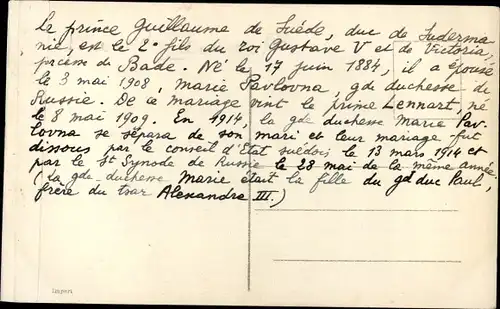 Le prince Guillaume de Suède, duc de Suderma
nie, est le 2e fils du roi Gustave V et de Victoria,
pcesse de Bade. Né le 17 juin 1884, il a épousé
le 3 mai 1908, Marie Pavlovna, gde duchesse de
Russie. De ce mariage vint le prince Lennart, né
le 8 mai 1909. En 1914, la gde duchesse Marie Pav-
lovna se sépara de son mari et leur mariage fut
dissous par le conseil d'Etat suédois le 13 mars 1914 et
par le St Synode de Russie le 28 mai de la même année.
(La gde-duchesse Marie était la fille du gd duc Paul,
frère du tsar Alexandre III.)